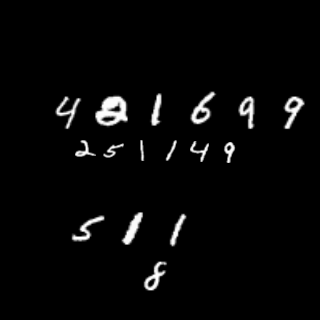 421699
251149
511
8